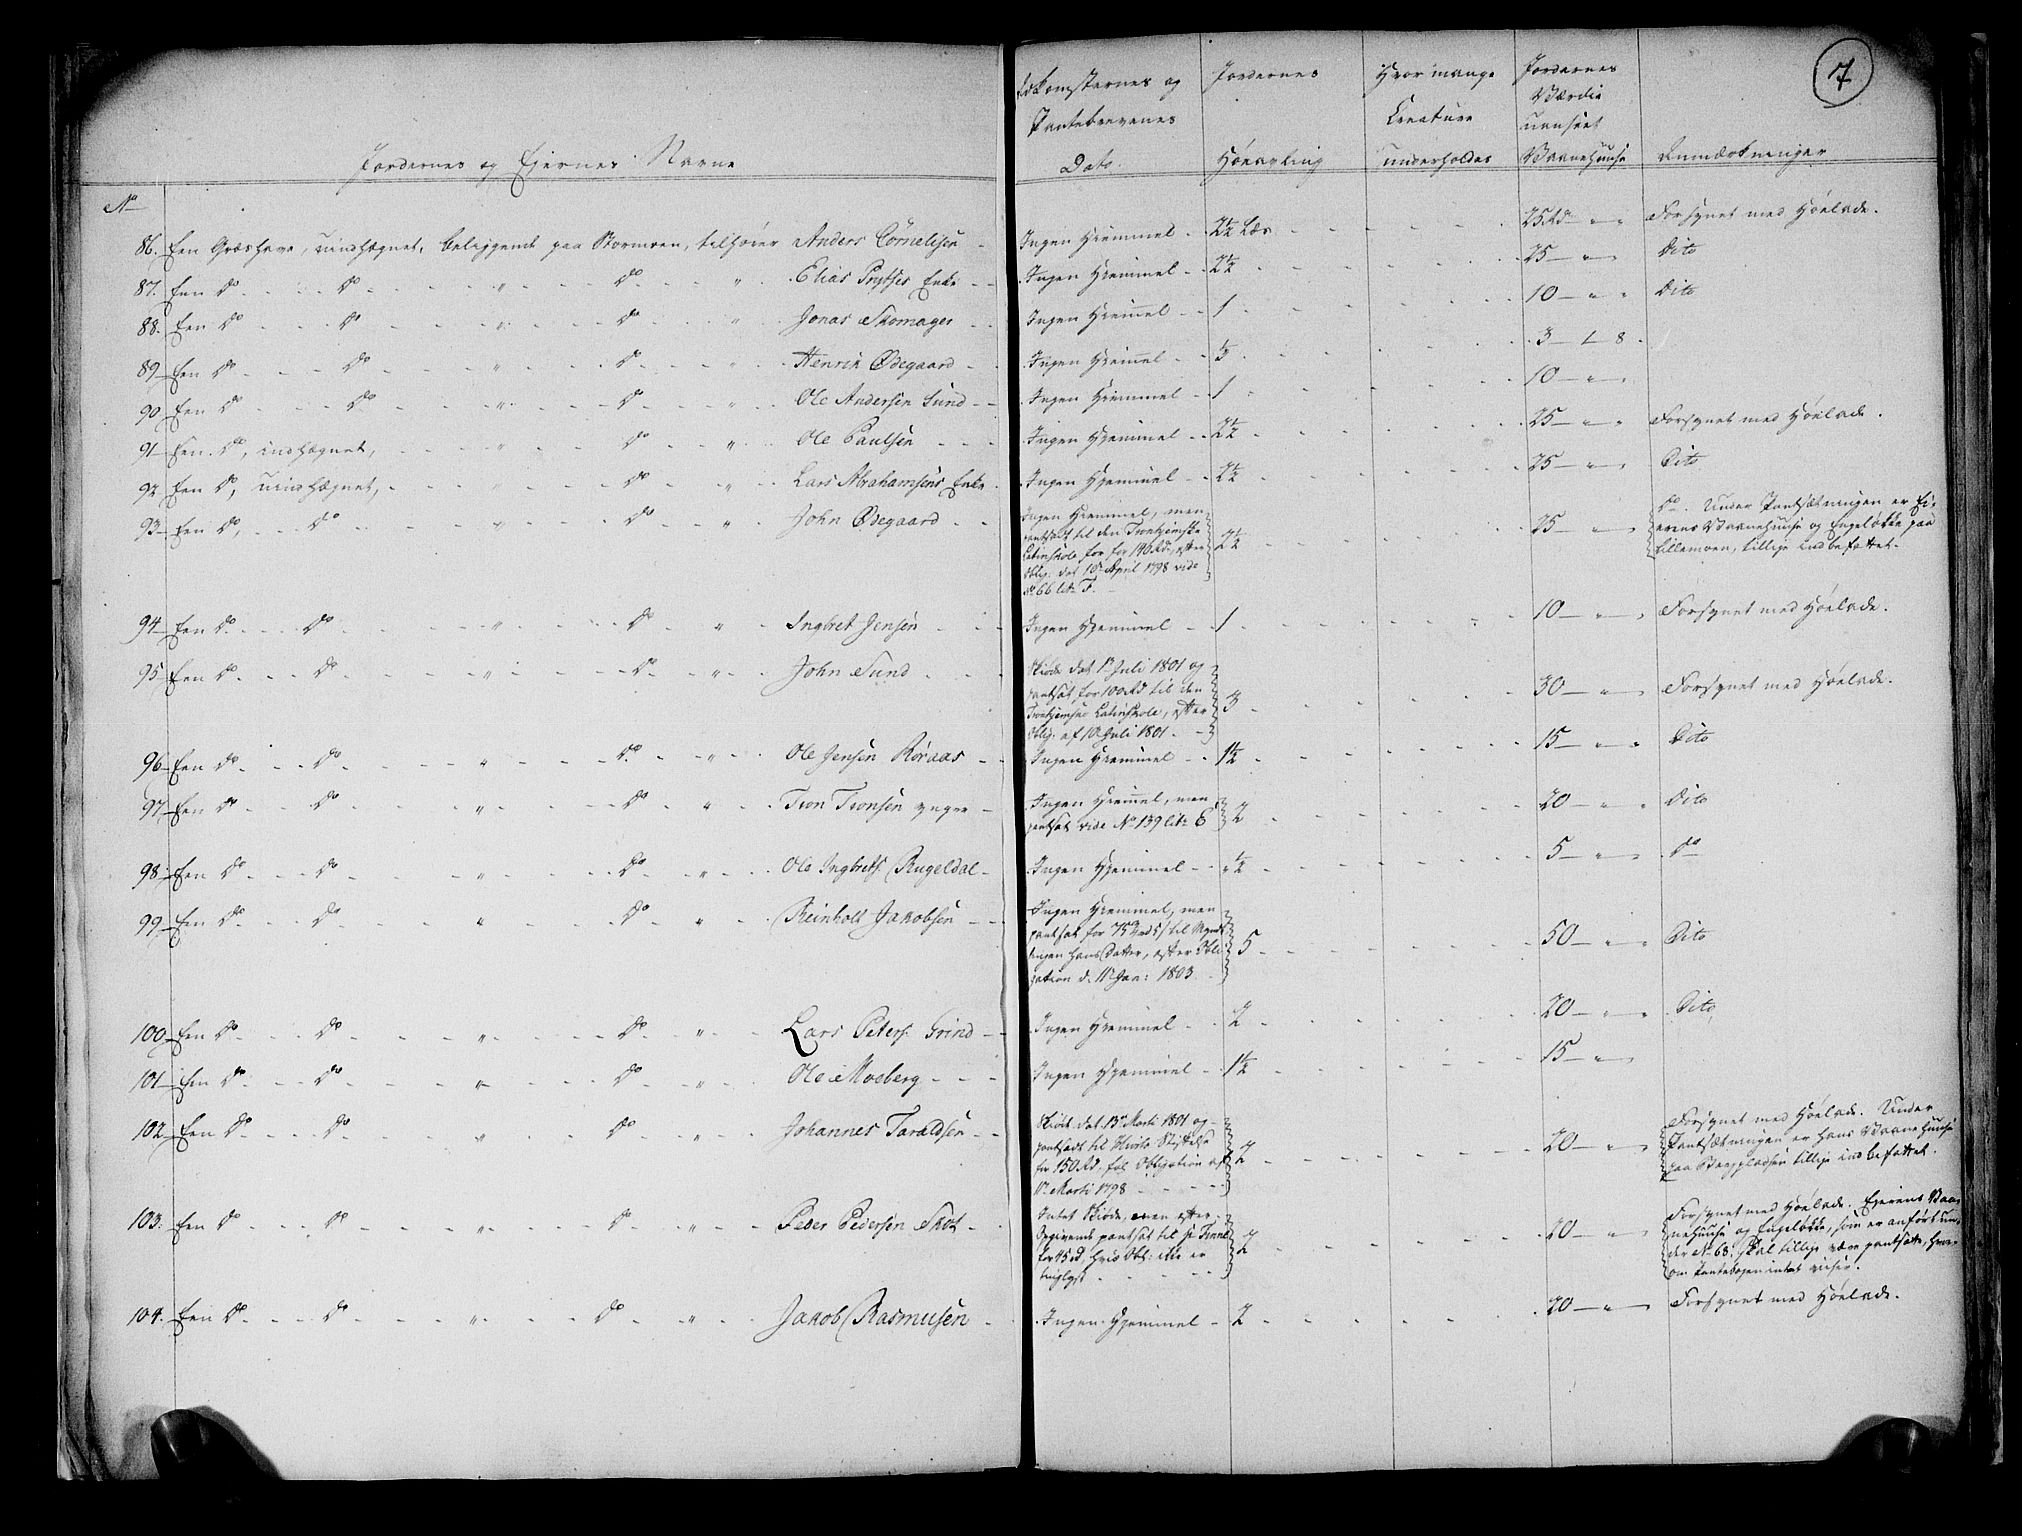 7
Jordernes og Ejernes Navne
Adkomsternes og Pantebrevenes Dato.
Jordernes Høeavling
Hvor mange Creature underholdes
Jordernes Værdie uanseet Vaanehuuse
Anmærkninger
No
86. Een Græshave, uindhægnet, beliggende paa Stormoen, tilhører Anders Cornelisen - Ingen Hiemmel - 2½ Læs - 25 Rd - " - " Forsynet med Høelade.
87. Een Do - Do - " - Do - " Elias Prytses Enke - Ingen Hiemmel - 2½ - 25 - " - Dito
88. Een Do - Do - " - Do - " Jonas Skomager - Ingen Hiemmel - 1 - 10 - " - " Dito
89 Een Do - Do - " - Do - " Henrik Ødegaard - Ingen Hiemmel - ⅓ - 3 - 1 - 8.
90 Een Do - Do - " - Do - " Ole Andersen Sund - Ingen Hiemmel - 1 - 10 - " -
91 Een Do, indhægnet, - " - Do - " Ole Paulsen - Ingen Hjemmel - 2½ - 25 - " - " Forsynet med Høelade.
92 Een Do, uindhægnet, - " - Do - " Lars Abrahamsens Enke. Ingen Hjemmel - 2½ - 25 - " - Dito
93 Een Do, - Do - " - Do - " John Ødegaard - 2½ - 25 - " -
Ingen Hiemmel, men
pantsadt til den Trontjemske
Latinskole for for 140 Rd, efter
Oblig: dat 10 April 1798 vide
No 66 litr F.
Do. Under Pantsætningen er Ei-
erens Vaanehuuse og Engeløkke paa
Lillemoen, tillige indbefattet.
94 Een Do - Do - " - Do - " Ingbret Jensen - Ingen Hjemmel - 1 - 10 - " - Forsynet med Høelade.
95 Een Do - Do - " - Do - " John Sund - 3 - 30 - " - Forsynet med Høelade.
Skiøde dat Juli 1801 og
pantsat for 100 Rd til den
Trontjemske Latinskole, efter
Oblig: af 10 Juli 1801.
96 Een Do - Do - " - Do - " Ole Jensen Røraas - Ingen Hiemmel - 1½ - 15 - " - " Dito
97 Een Do - Do - " - Do - " Tron Tronsen yngre - 2 - 20 - " - Dito
Ingen Hiemmel, men
pantsat vide No 139 litr E
98. Een Do - Do - " - Do - " Ole Ingbrets. Rugeldal - Ingen Hjemmel - ½ - 5 - " - Do
99 Een Do - Do - " - Do - " Reinholt Jakobsen - 5 - 50 - " - Dito
Ingen Hiemmel, men
pantsat for 75 til
Hans Datter, efter Obli
gation d. 11 Jan: 1803
100 Een Do - Do - " - Do - " Lars Peters. Grind - Ingen Hiemmel - 2 - 20 - " - Dito
101 Een Do - Do - " - Do - " Ole Mosberg - Ingen Hjemmel - 1½ - 15 - " -
102 Een Do - Do - " - Do - " Johannes Taraldsen - 2 - 20 - " -
Skiøde dat 13 Marti 1801 og
pantsadt til Stiftelse
for 150 Rd, føl Obligation af
11 Marti 1798
Forsynet med Høelade. Under
Pantsætningen er hans Vaanehuuse
paa tillige indbefattet.
103. Een Do - Do - " - Do - " Peder Pedersen Skot - 2 - 20 - " -
Intet Skiøde, men efter
Opgivende pantsat til
for 45 rd, hvis Obl: ikke er
tinglyst
Forsynet med Høelade. Ejerens Vaa-
nehuuse og Engeløkke, som er anført un-
der No 68. skal tillige være pantsatte, hvor-
om Pantebogen intet viser.
104. Een Do - Do - " - Do - " Jakob Rasmusen - Ingen Hjemmel - 2 - 20 - " - Forsynet med Høelade.